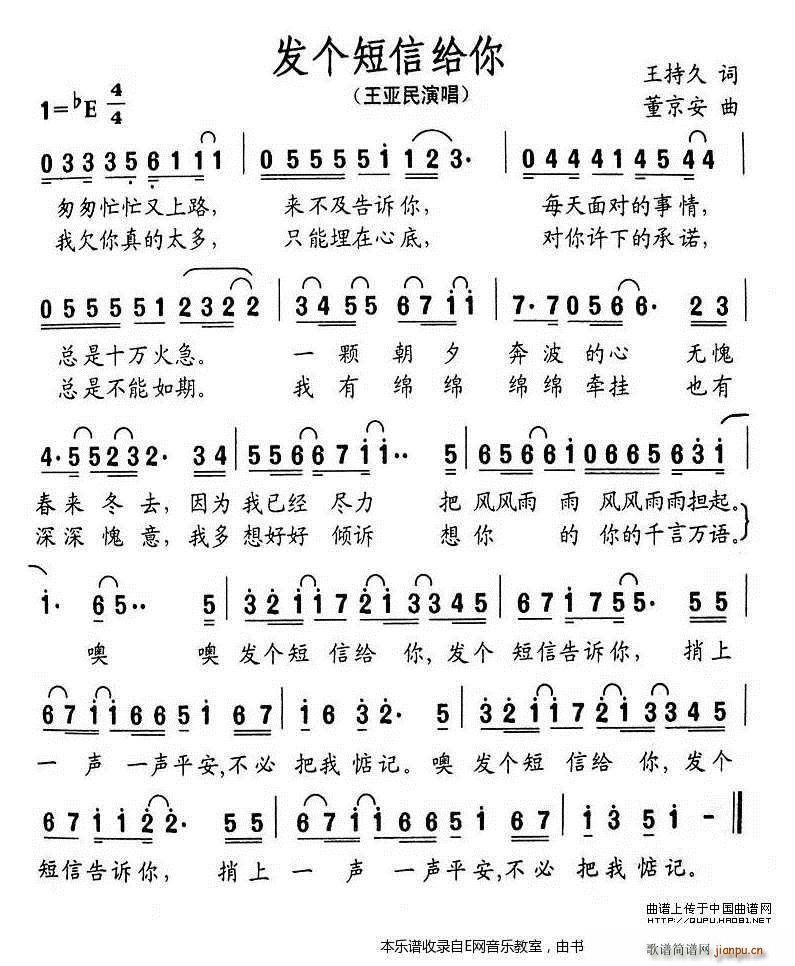 发个短信给你
(王亚民演唱)
王持久 词
董京安 曲
1=♭E 4/4
0333561 11 055551 123· 044414544
匆匆忙忙又上路, 来不及告诉你, 每天面对的事情,
我欠你真的太多, 只能埋在心底, 对你许下的承诺,
0555551 2322 34 55 67 11 7·70566· 23
总是十万火急。 一颗朝夕奔波的心 无愧
总是不能如期。 我有绵绵绵绵牵挂 也有
4·555232· 34 55566711·· 5 656610665631
春来冬去, 因为我已经尽力 把风风雨雨风风雨雨担起。
深深愧意, 我多想好好倾诉 想你的你的千言万语。
1· 65·· 5 32117213345 671755· 55
噢 噢发个短信给你, 发个短信告诉你, 捎上
67116651 67 1632· 5 32117213345
一声一声平安, 不必把我惦记。噢发个短信给你, 发个
671122· 55 67116651 67 1351 -
短信告诉你, 捎上一声一声平安, 不必把我惦记。
曲谱上传于中国曲谱网
@QUPU.HAO81.NET
本乐谱收录自E网音乐教室，由书
歌谱简谱网
jianpu.cn